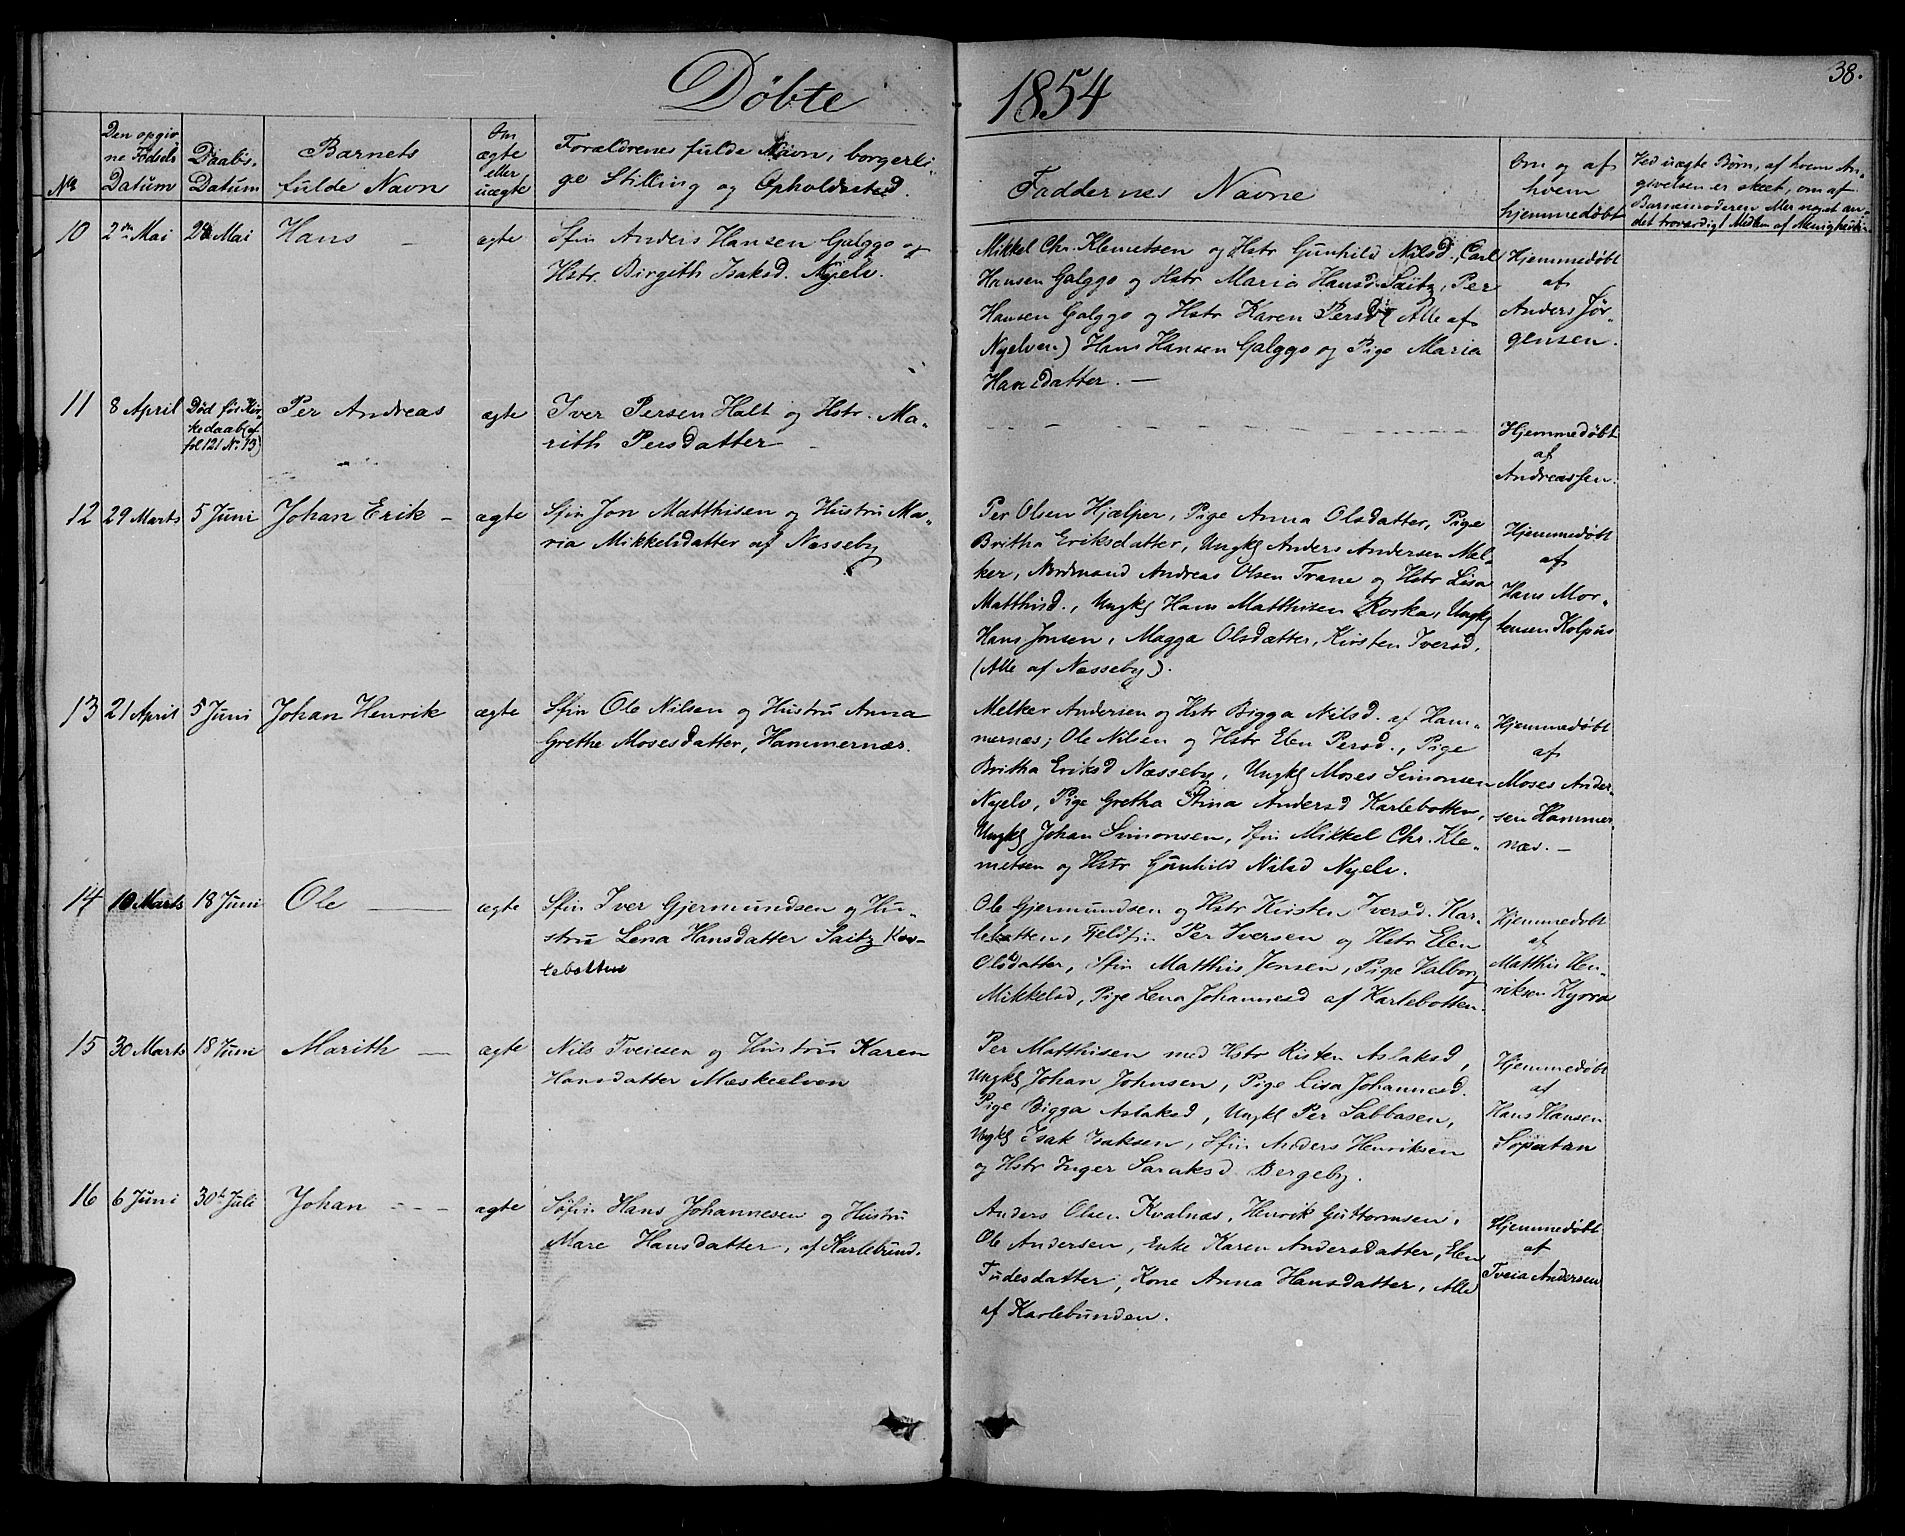 Døbte 1854
38.
No
Den opgiv
ne Fødsels
Datum
Daabs-
Datum
Barnets
fulde Navn
Om
ægte
eller
uægte
Forældrenes fulde Navn, borgerli-
ge Stilling og Opholdssted.
Faddernes Navne
Om og af
hvem
hjemmedøbt
Ved uægte Børn, af hvem An-
givelsen er skeet, om af
Barnemoderen eller noget an-
det troværdigt Medlem af Menigheden
10 2den Mai 28 Mai Hans – ægte
Sfin Anders Hansen Galggo og
Hstr. Birgith Isaksd. Nyelv.
Mikkel Chr. Klemetsen og Hstr Gunhild Nilsd., Carl
Hansen Galggo og Hstr Maria Hansd. Saitz, Per
Hansen Galggo og Hstr Karen Persd (Alle af
Nyelven) Hans Hansen Galggo og Pige Maria
Hansdatter. —
Hjemmedøbt
af
Anders Jør-
gensen.
11 8 April
Død før Kir-
kedaab (cf
fol 121 No 13)
Per Andreas ægte
Iver Persen Halt og Hstr. Ma-
rith Persdatter
Hjemmedøbt
af
Andreassen.
12 29 Marts 5 Juni Johan Erik – ægte
Sfin Jon Matthisen og Hustru Ma-
ria Mikkelsdatter af Næsseby
Per Olsen Hjælper, Pige Anna Olsdatter, Pige
Britha Eriksdatter, Ungkl Anders Andersen Mel-
ker, Nordmand Andreas Olsen Trane og Hstr Lisa
Matthisd., Ungkl Hans Matthisen Rorka, Ungkl
Hans Jonsen, Magga Olsdatter, Kirsten Iversd,
(Alle af Næsseby).
Hjemmedøbt
af
Hans Mor-
tensen Kolpus
13 21 April 5 Juni Johan Henrik ægte
Sfin Ole Nilsen og Hustru Anna
Grethe Mosesdatter, Hammernæs.
Melker Andersen og Hstr Bigga Nilsd. af Ham-
mernæs; Ole Nilsen og Hstr Elen Persd., Pige
Britha Eriksd Næsseby, Ungkl Moses Simonsen
Nyelv, Pige Gretha Stina Andersd Karlebotten,
Ungkl Johan Simonsen, Sfin Mikkel Chr. Kle-
metsen og Hstr Gunhild Nilsd Nyelv.
Hjemmedøbt
af
Moses Ander-
sen Hammer-
næs. –
14 10 Marts 18 Juni Ole — ægte
Sfin Iver Gjermundsen og Hu-
stru Lena Hansdatter Saitz Kar-
lebotten
Ole Gjermundsen og Hstr Kirsten Iversd. Kar-
lebotten, Fjeldfin Per Iversen og Hstr Elen
Olsdatter, Sfin Matthis Jensen, Pige Valborg
Mikkelsd, Pige Lena Johannesd af Karlebotten.
Hjemmedøbt
af
Matthis Hen-
riksen Kjorra
15 30 Marts 18 Juni Marith — ægte
Nils Tveiesen og Hustru Karen
Hansdatter Mæskeelven
Per Matthisen med Hstr Risten Aslaksd,
Ungkl Johan Johnsen, Pige Lisa Johannesd.
Pige Bigga Aslaksd, Ungkl Per Sabbasen,
Ungkl Isak Isaksen, Sfin Anders Henriksen
og Hstr Inger Saraksd Bergeby.
Hjemmedøbt
af
Hans Hansen
Sopatan
16 6 Juni 30te Juli Johan – – – ægte
Søfin Hans Johannesen og Hustru
Mare Hansdatter, af Karlebund.
Anders Olsen Kvalnæs, Henrik Guttormsen,
Ole Andersen, Enke Karen Andersdatter, Elen
Tudesdatter, Kone Anna Hansdatter, Alle
af Karlebunden.
Hjemmedøbt
af
Tveia Andersen